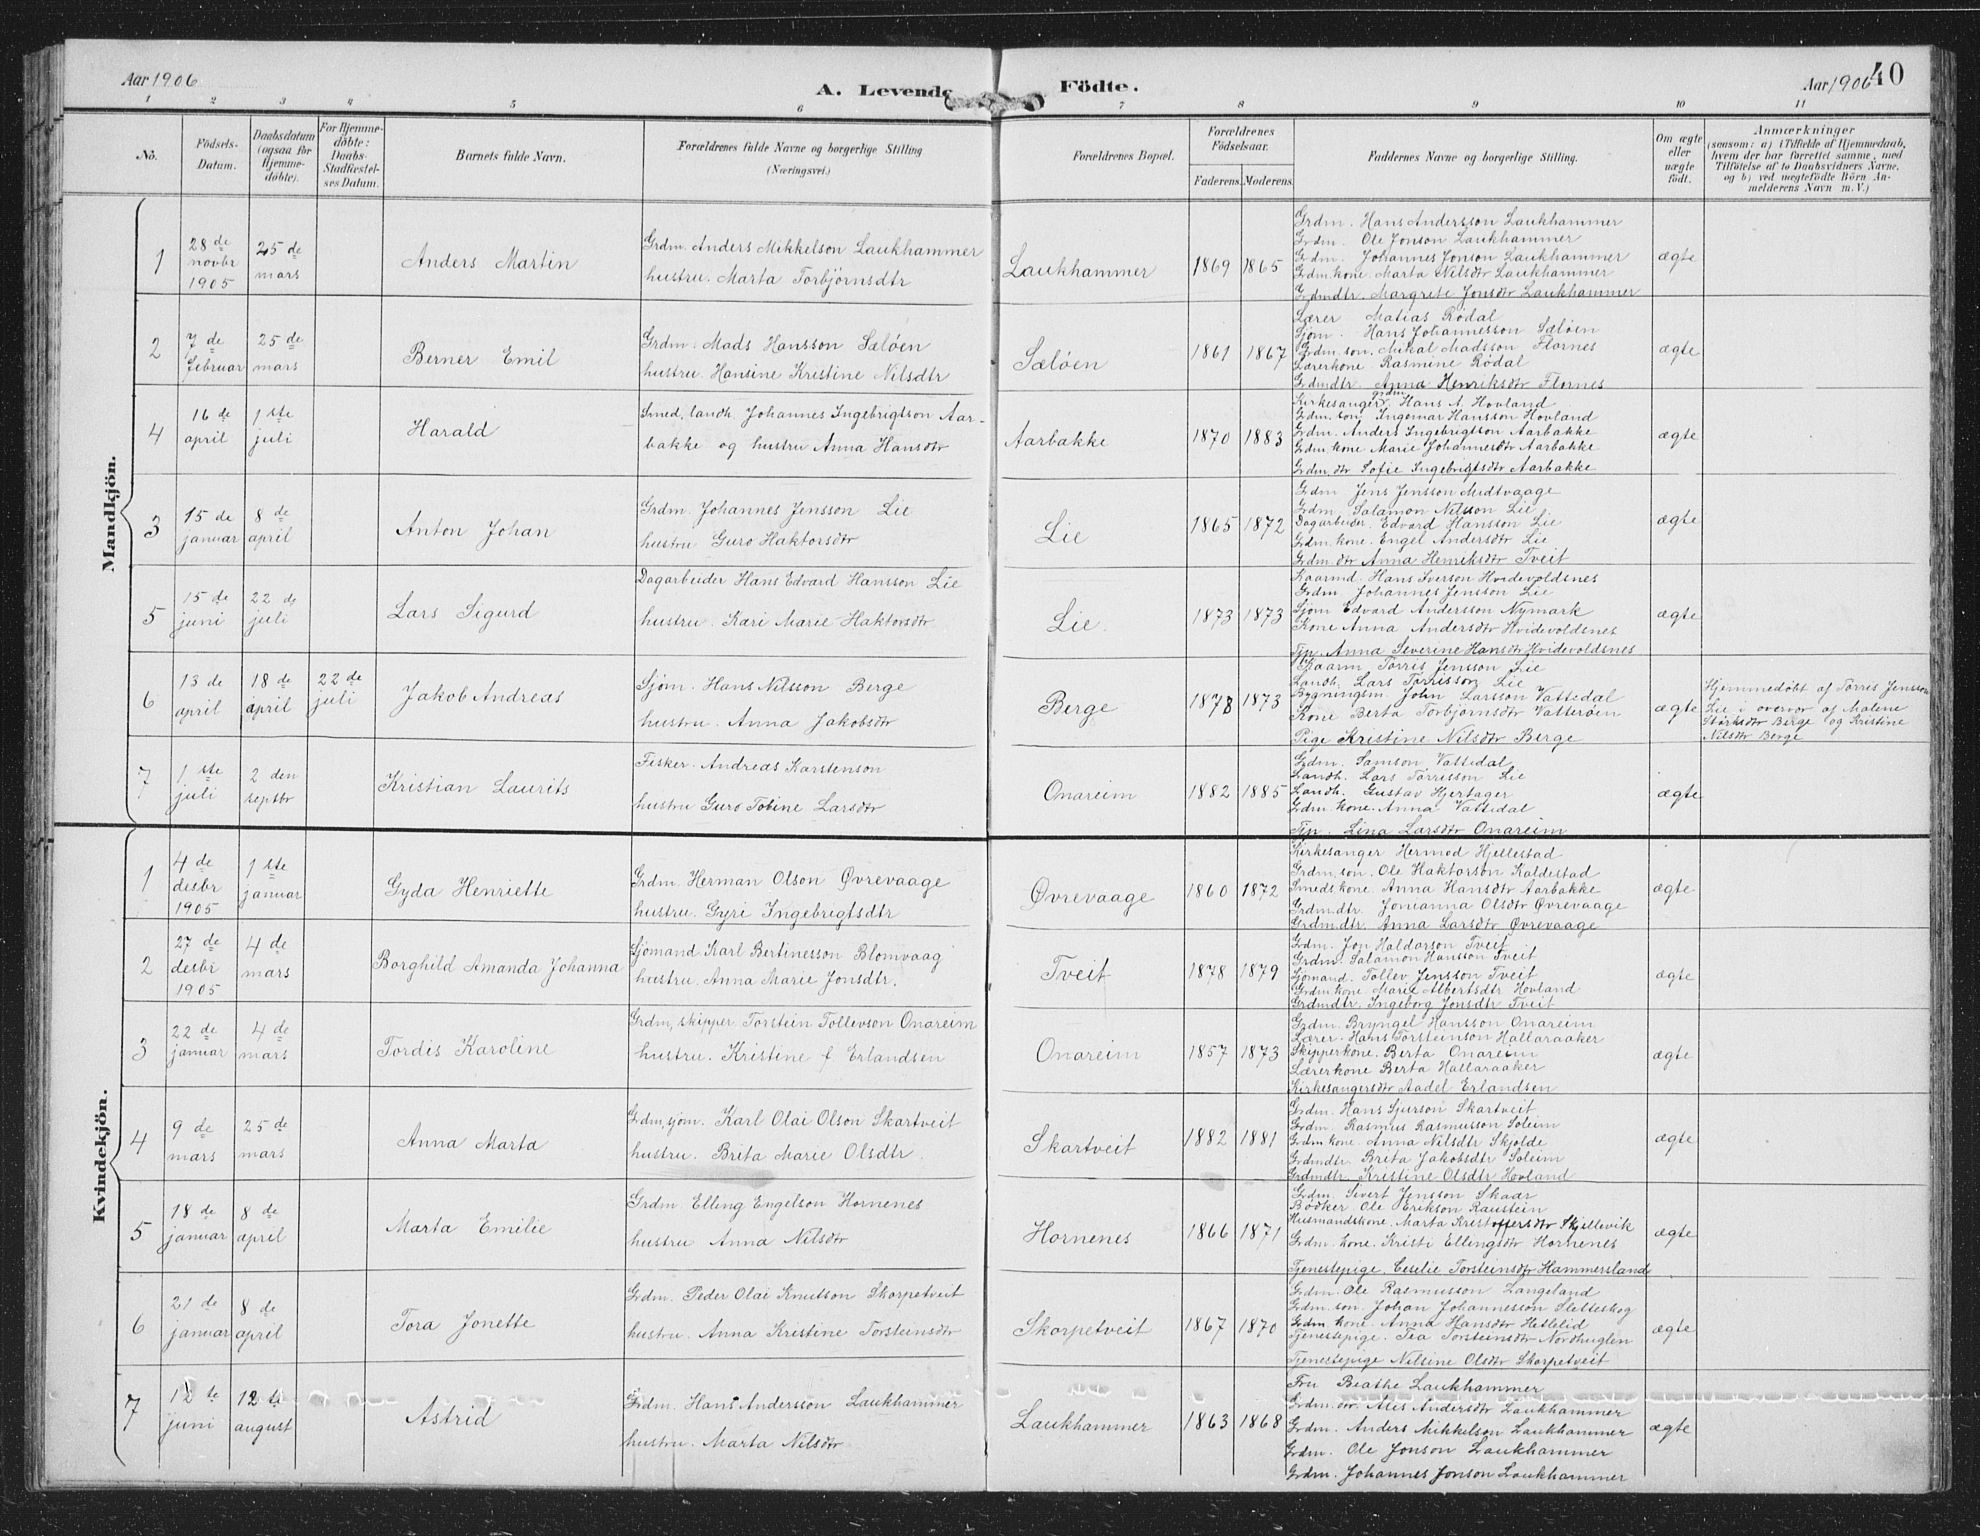 Aar 1906
A. Levende Födte.
Aar 1906
40
1 2 3 4 5 6 7 8 9 10 11
No.
Födsels-Datum.
Daabsdatum (ogsaa for Hjemme-döbte).
For Hjemme-döbte: Daabs-Stadfæstel-ses Datum.
Barnets fulde Navn.
Forældrenes fulde Navne og borgerlige Stilling
(Næringsvei.)
Forældrenes Bopæl.
Forældrenes Födselsaar.
Faderens. Moderens.
Faddernes Navne og borgerlige Stilling.
Om ægte eller uægte födt.
Anmærkninger
(saasom: a) i Tilfælde af Hjemmedaab, hvem der har forrettet samme, med Tilföielse af to Daabsvidners Navne, og b) ved uægtefödte Börn An-melderens Navn m. V.)
Mandkjön.
1
28 de novbr 1905
25 de mars
Anders Martin
Grdm. Anders Mikkelson Laukhammer
hustru. Marta Torbjørnsdtr
Laukhammer
1869 1865
Grdm. Hans Andersson Laukhammer
Grdm. Ole Jonson Laukhammer
Grdm. Johannes Jonson Laukhammer
Grdm. kone Marta Nilsdtr Laukhammer
Grdmdtr. Margrete Jonsdtr Laukhammer
ægte
2
7 de februar
25 de mars
Berner Emil
Grdm. Mads Hansson Sæløen
hustru. Hansine Kristine Nilsdtr
Sæløen
1861 1867
Lærer Matias Rødal
Sjøm. Hans Johannesson Sæløen
Grdm. søn. Mikal Madsson Flornes
Lærerkone Rasmine Rødal
Grdmdtr. Anna Henriksdtr Flornes
ægte
4
16 de april
1 ste juli
Harald
Smed, landh. Johannes Ingebrigtson Aar-
bakke og hustru Anna Hansdtr
Aarbakke
1870 1883
Kirkesanger, grdm. Hans A. Hovland
Grdm. søn. Ingemar Hansson Hovland
Grdm. Anders Ingebrigtson Aarbakke
Grdm. kone Marie Johannesdtr Aarbakke
Grdm. dtr Sofie Ingebrigtsdtr Aarbakke
ægte
3
15 de januar
8 de april
Anton Johan
Grdm. Johannes Jensson Lie
hustru Guro Haktorsdtr
Lie
1865 1872
Grdm Jens Jensson Midtvaage
Grdm Salamon Nilsson Lie
Dagarbeider. Edvard Hansson Lie
Grdm. kone. Engel Andersdtr Lie
Grdm. dtr Anna Henriksdtr Tveit
ægte
5
15 de juni
22 de juli
Lars Sigurd
Dagarbeider Hans Edvard Hansson Lie
hustru. Kari Marie Haktorsdtr
Lie.
1873 1873
Kaarmd. Hans Iverson Hvidevoldsnes
Grdm. Johannes Jensson Lie
Sjøm Edvard Andersson Nymark
Kone Anna Andersdtr Hvidevoldsnes
Tjp. Anna Severine Hansdtr Hvidevoldsnes
ægte
6
13 de april
18 de april
22 de juli
Jakob Andreas
Sjøm. Hans Nilsson Berge
hustru. Anna Jakobsdtr
Berge
1878 1873
Kaarm. Torris Jensson Lie
Landh. Lars Torrisson Lie
Bygningsm. John Larsson Vattedal
Kone Berta Torbjørnsdtr Vatterøin
Pige Kristine Nilsdtr Berge
ægte
Hjemmedøbt af Tørris Jensson
Lie i overvær af Malene
Størksdtr Berge og Kristine
Nilsdtr Berge
7
1 ste juli
2 den septbr
Kristian Laurits
Fisker. Andreas Karstenson
hustru Guro Tobine Larsdtr
Onareim
1882 1885
Grdm. Samson Vattedal
Landh. Lars Torrisson Lie
Landh. Gustav Hjertager
Grdm. kone. Anna Vattedal
Tjp. Lina Larsdtr Onareim
ægte
Kvindekjön.
1
4 de desbr 1905
1 ste januar
Gyda Henriette
Grdm. Herman Olson Øvrevaage
hustru. Gyri Ingebrigtsdtr
Øvrevaage
1860 1872
Kirkesanger Hermod Hjellestad
Grdm. søn. Ole Haktorson Kaldestad
Smeds kone. Anna Hansdtr Aarbakke
Grdm. dtr. Johanna Olsdtr Øvrevaage
Grdmdtr. Anna Larsdtr Øvrevaage
ægte
2
27 de desbr 1905
4 de mars
Borghild Amanda Johanna
Sjømand Karl Bertinesson Blomvaag
hustru. Anna Marie Jonsdtr.
Tveit
1878 1879
Grdm. Jon Haldorson Tveit
Grdm. Salamon Hansson Tveit
Sjømand. Tollev Jensson Tveit
Grdm kone Marie Albertsdtr Hovland
Grdmdtr. Ingeborg Jonsdtr Tveit
ægte
3
22 de januar
4 de mars
Tordis Karoline
Grdm, skipper Torstein Tollevson Onareim
hustru. Kristine f. Erlandsen
Onareim
1857 1873
Grdm. Bryngel Hansson Onareim
Lærer. Hans Torsteinson Hallaraaker
Skipperkone. Berta Onareim
Lærerkone Berta Hallaraaker
Kirkesangersdtr Aadel Erlandsen
ægte
4
9 de mars
25 de mars
Anna Marta
Grdm, sjøm. Karl Olai Olson Skartveit
hustru. Brita Marie Olsdtr.
Skartveit
1882 1881
Grdm. Hans Sjurson Skartveit
Grdm. Rasmus Rasmusson Soleim
Grdm kone. Anna Nilsdtr Skjolde
Grdmdtr. Brita Jakobsdtr Soleim
Grdmdtr. Kristine Olsdtr Hovland
ægte
5
18 de januar
8 de april
Marta Emilie
Grdm. Elling Engelson Hornenes
hustru Anna Nilsdtr
Hornenes
1866 1871
Grdm. Sivert Jensson Skaar
Bødker Ole Erikson Raustein
Husmandskone. Marta Kristoffersdtr Skjellevik
Grdm. kone. Kristi Ellingsdtr Hornenes
Tjenestepige. Ceselie Torsteinsdtr Hammersland
ægte
6
21 de januar
8 de april
Tora Jonette
Grdm. Peder Olai Knutson Skorpetveit
hustru. Anna Kristine Torsteinsdtr
Skorpetveit
1867 1870
Grdm. Ole Rasmusson Langeland
Grdm. søn. Johan Johannesson Sletteskog
Grdm. kone. Anna Hansdtr Hetlelid
Tjenestepige. Tea Torsteinsdtr Nordhuglen
Tjenestepige Nilsine Olsdtr Skorpetveit
ægte
7
12 te juni
12 te august
Astrid
Grdm. Hans Andersson Laukhammer
hustru. Marta Nilsdtr
Laukhammer
1863 1868
Fru Beathe Laukhammer
Grdm. dtr. Alis Andersdtr Laukhammer
Grdm. Anders Mikkelson Laukhammer
Grdm. Ole Jonson Laukhammer
Grdm. Johannes Jonson Laukhammer
ægte